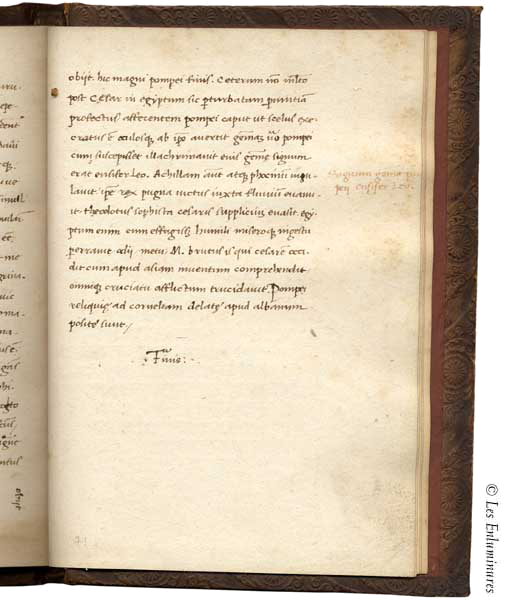 obijt. hic magni pompei finis. Ceterum nō mlto
post Cęsar in egyptum sic pturbatam puintiā
profectus afferentem pompei caput ut scelus exe
cratus ē oculosq; ab ipo auertit gēmaȝ uº pompei
cum suscepisset illachrimauit eius gēmę signum
erat ensifer leo. Achillam aut atq; phocinū
ipe rex pugna uictus iuxta fluuiū euanu
it. theodotus sophista cesaris supplicium euasit. egy
ptum enim cum effugisset humili miseroq; ingestu
perrauit odij metu. M. brutus is qui cesarē occi
dit cum apud asiam inuentum comprehendit
omniq; cruciatu afflictum trucidauit. Pompei
reliquię ad corneliam delatę apud albanum
positę sunt./
Finis:
Signum gēmę pō
peij ensifer leo.
obijt
71
© Les Enluminures